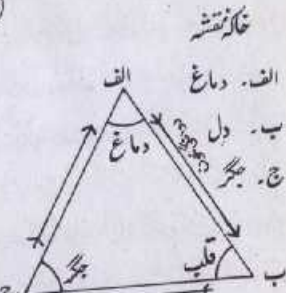 خاکہ نقشہ
الف۔ دماغ
ب۔ دل
ج۔ جگر
الف
دماغ
قلب
ب
جگر